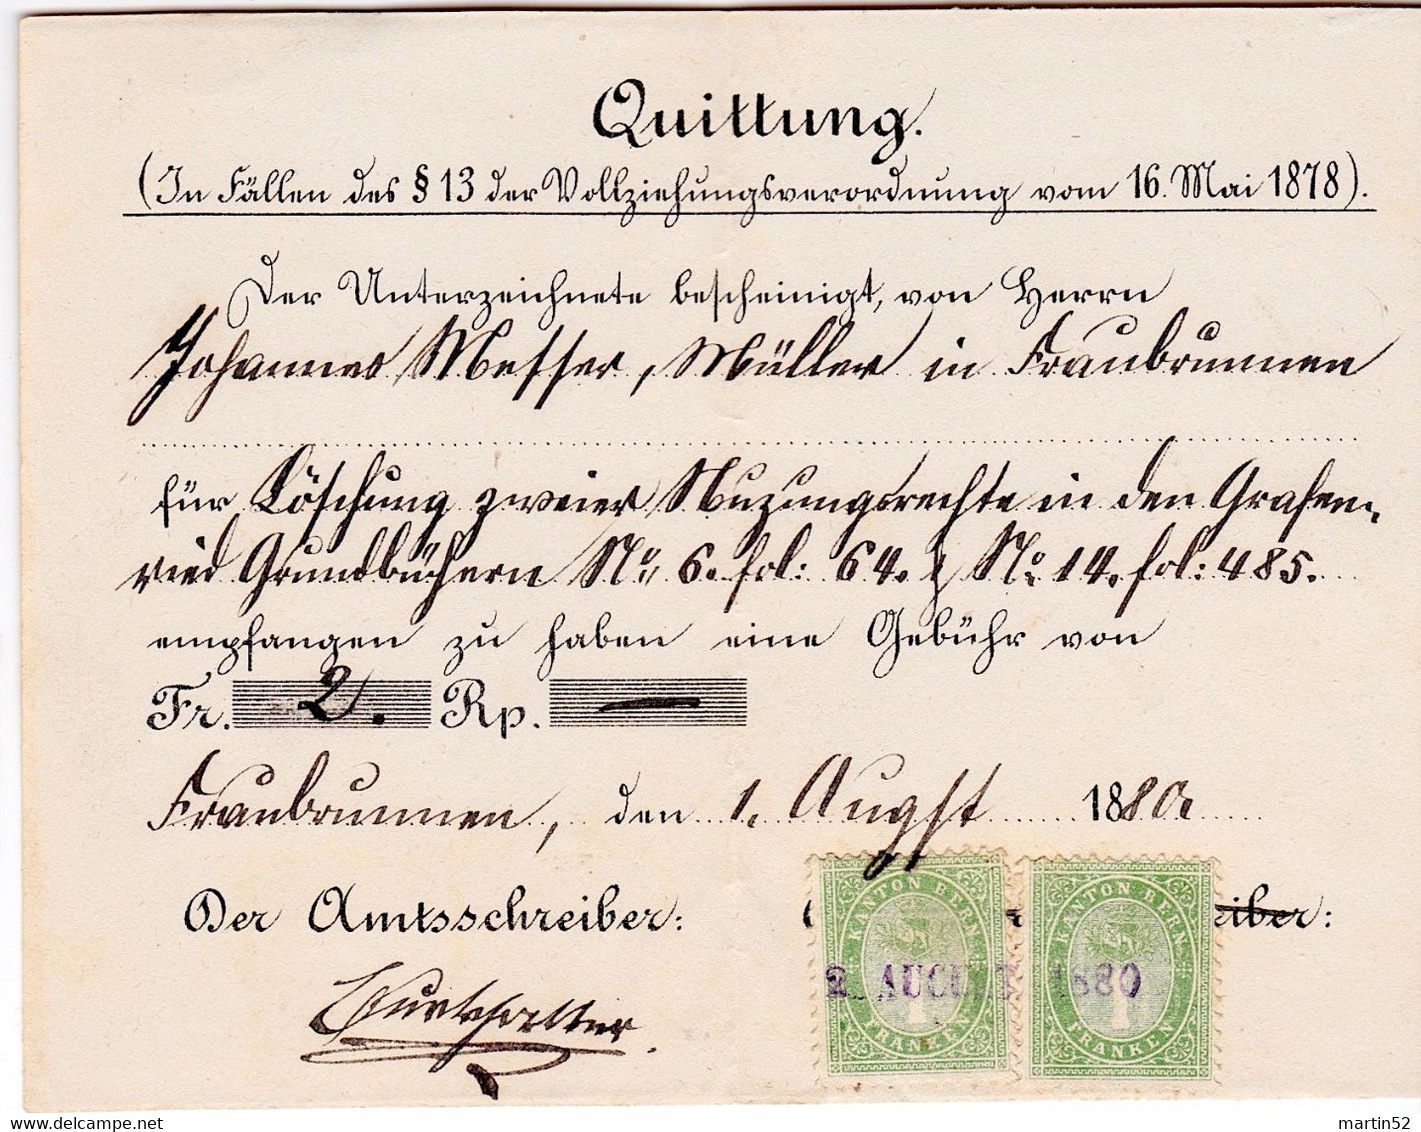 Quittung.
(In Fällen des § 13 der Vollziehungsverordnung vom 16. Mai 1878).
Der Unterzeichnete bescheinigt, von Herrn
Johannes Messer, Müller in Fraubrunnen
für Löschung zweier Nuzungsrechte in den Grafen-
ried Grundbüchern No 6. fol: 64. & No 14. fol: 485.
empfangen zu haben eine Gebühr von
Fr. 2. Rp. —
Fraubrunnen, den 1. Augst 1880.
Der Amtsschreiber: eiber:
KANTON BERN KANTON BERN
2. AUGUST 1880
1 FRANKEN 1 FRANKEN
Burkhalter.
delcampe.net
martin52